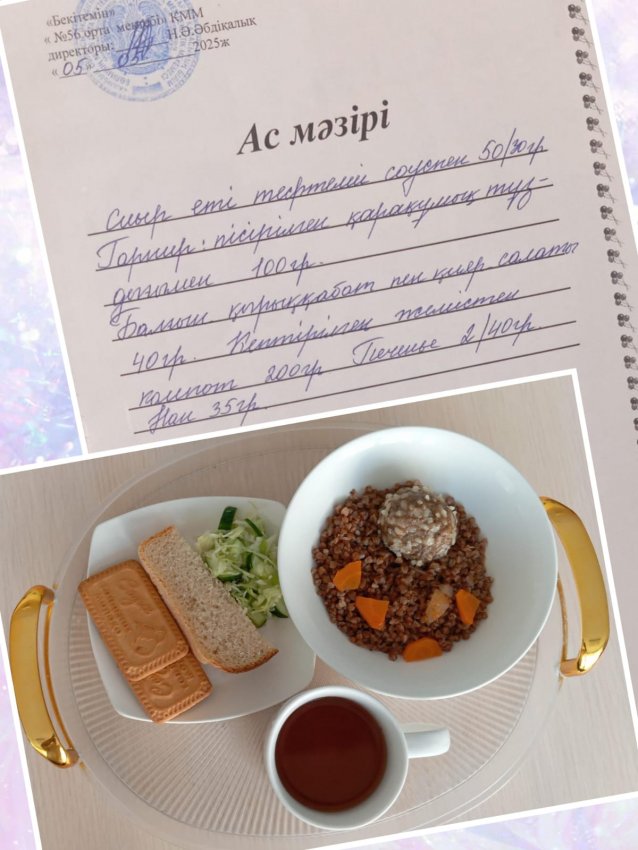 «Бекітемін»
« №56 орта мектебі» КММ
директоры: Н.Ә.Әбдіқалық
« 05 » 2025ж
Ас мәзірі
Сиыр еті тефтелі соуспен 50/30гр
Гарнир: пісірілген қарақұмық тұз-
дығымен 100гр.
Балғын қырыққабат пен қияр салаты
40гр. Кептірілген жемістен
компот 200гр Печенье 2/40гр.
Нан 35гр.